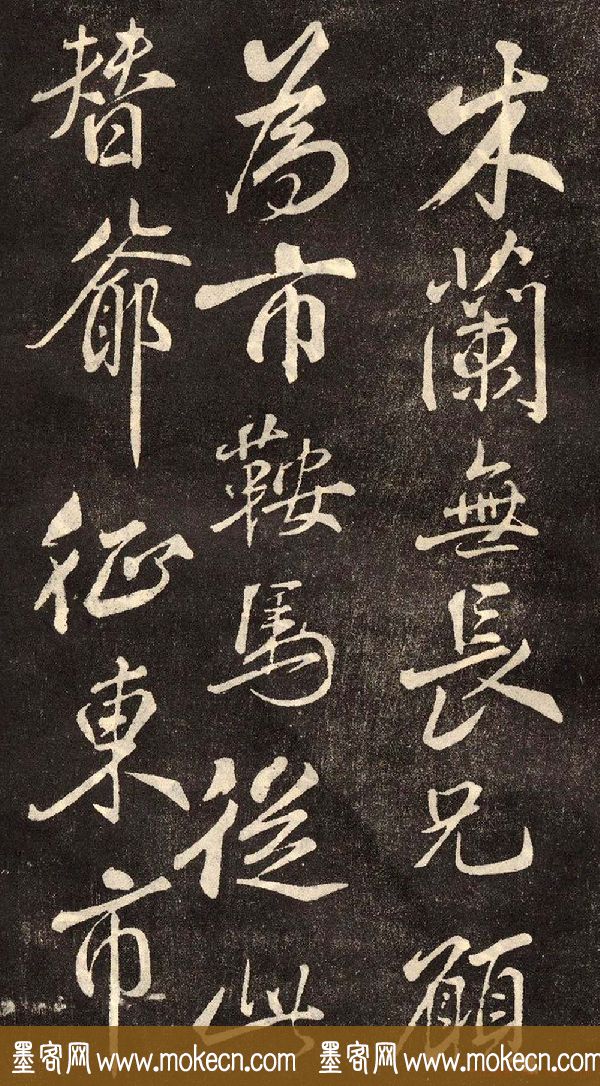 木蘭無長兄願
為市鞍馬從此
替爺征東市
墨客网 www.mokecn.com 墨客网 www.mokecn.com